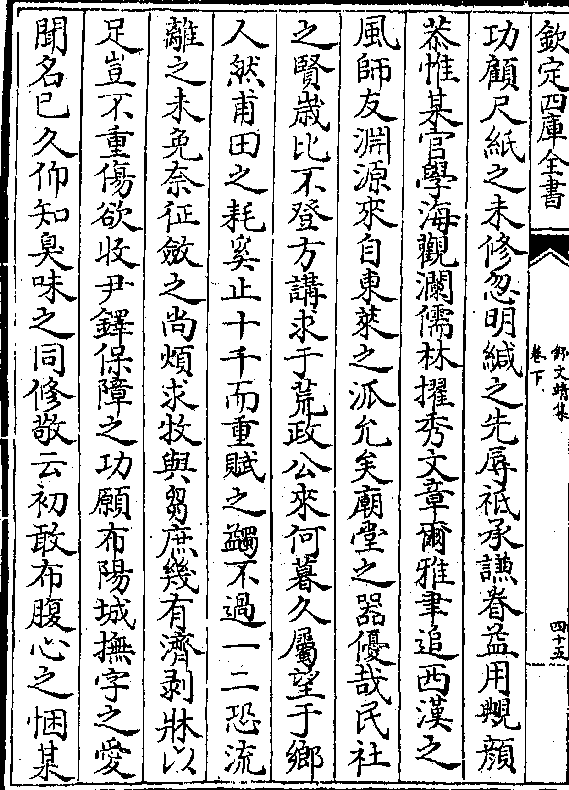 欽定四庫全書
鄭文靖集
卷下
四十五
功顧尺紙之未修忽明緘之先辱祗承謙眷益用覥顔
恭惟某官學海觀瀾儒林擢秀文章爾雅聿追西漢之
風師友淵源來自東萊之派允矣廟堂之器優哉民社
之賢歳比不登方講求于荒政公來何暮久屬望于鄉
人然甫田之耗奚止十千而重賦之蠲不過一二恐流
離之未免奈征斂之尚煩求牧與芻庶幾有濟剥牀以
足豈不重傷欲收尹鐸保障之功願布陽城撫字之愛
聞名已久仰知臭味之同修敬云初敢布腹心之悃某